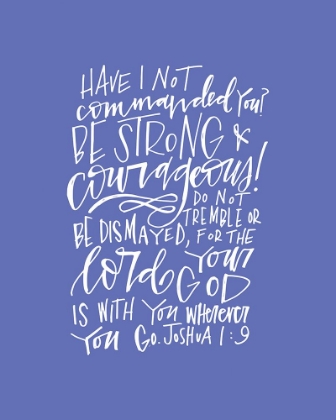 HAVE I NOT
commanded You?
BE STRONG &
courageous!
DO NOT
TREMBLE OR
BE DISMAYED, FOR THE
lord Your
GOD
IS WITH You wherever
You Go. JOSHUA 1:9